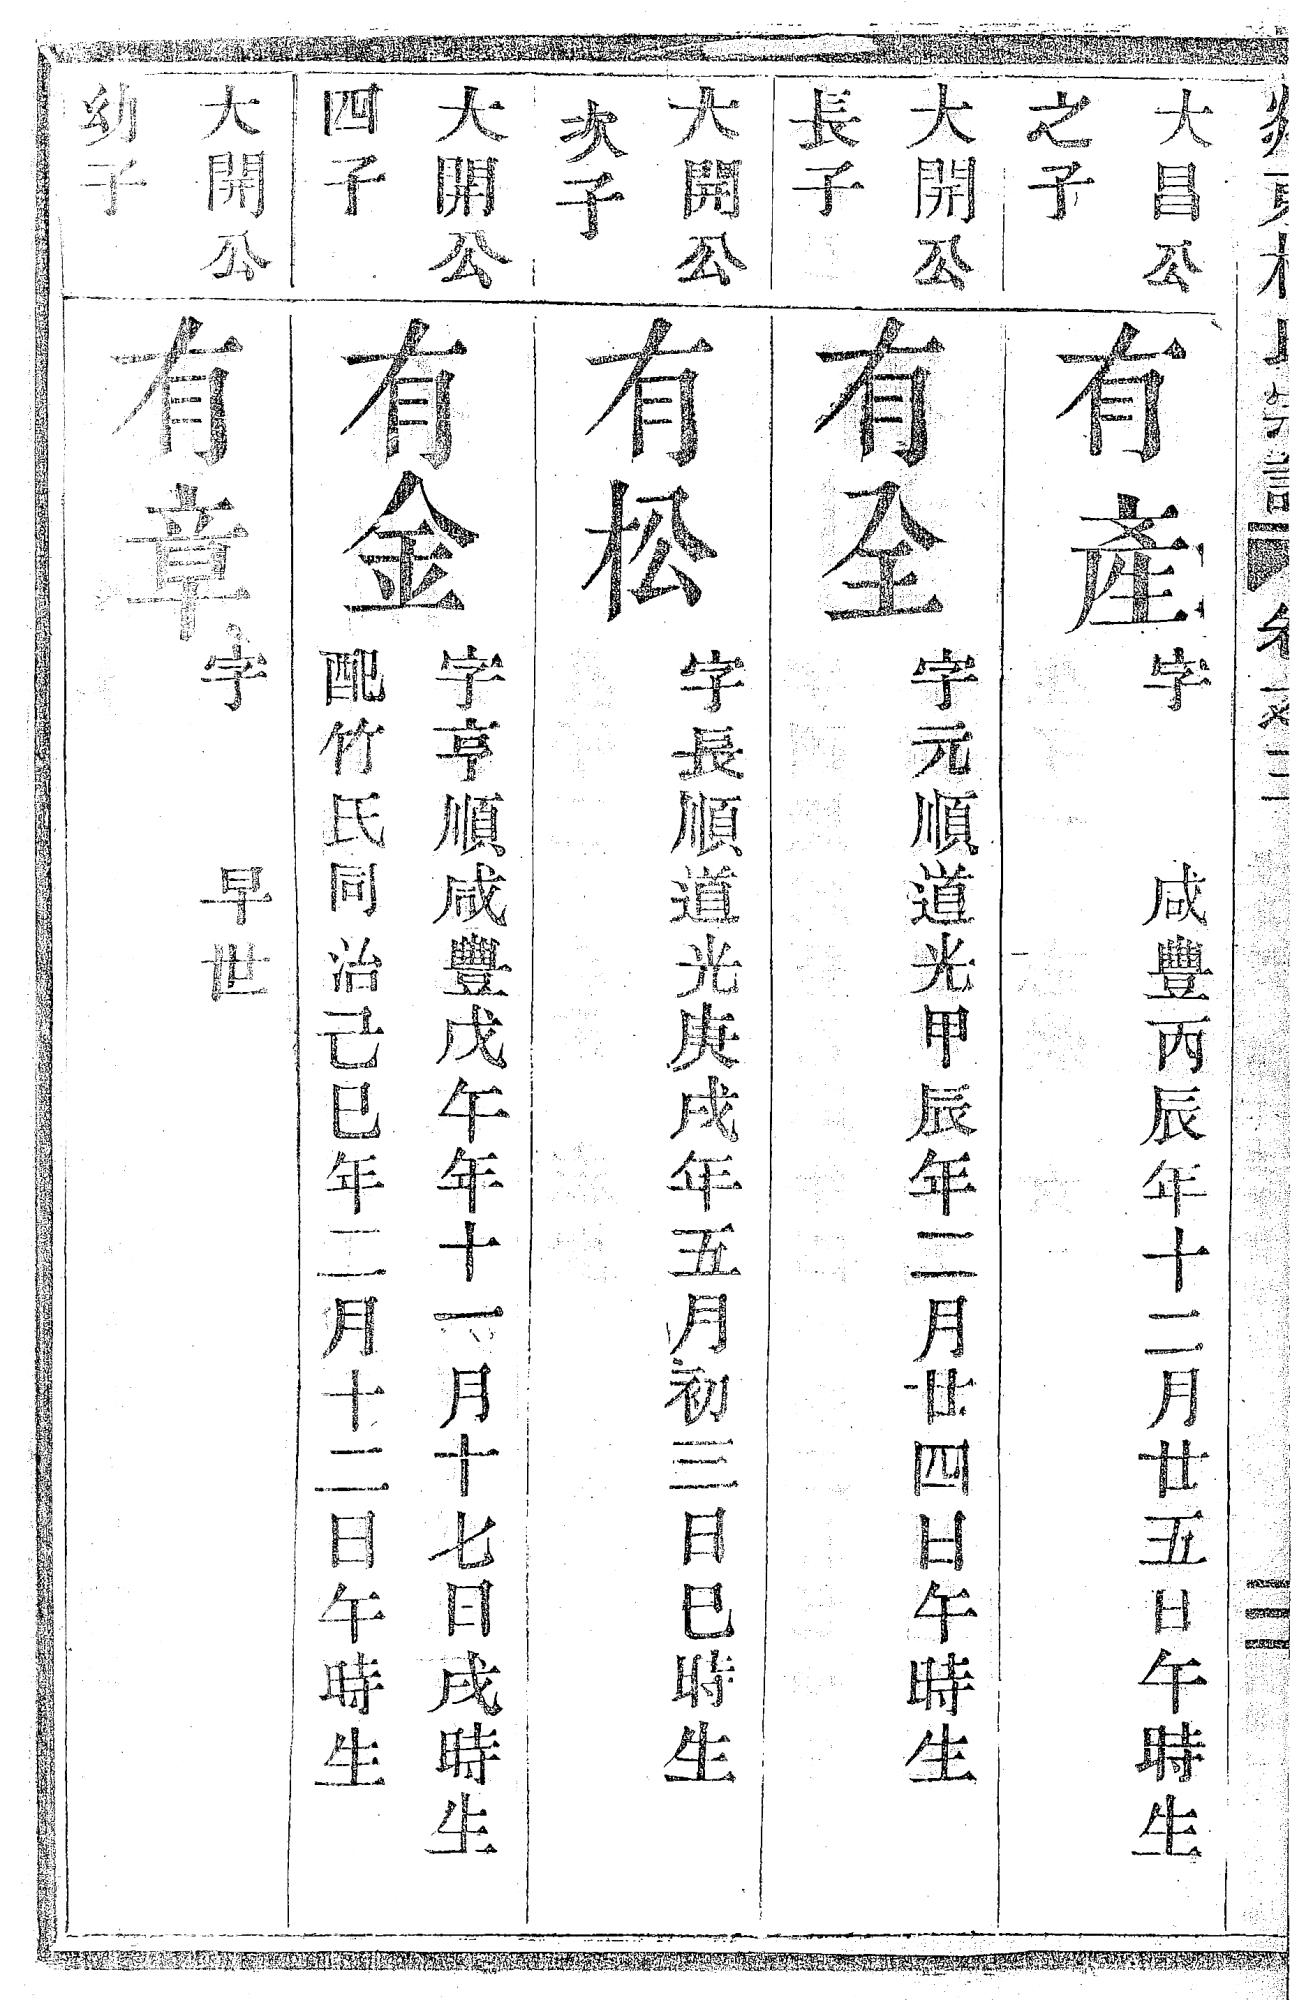 大昌公
之子
有產
字 咸豐丙辰年十二月廿五日午時生
大開公
長子
有全
字元順道光甲辰年二月廿四日午時生
大開公
次子
有松
字長順道光庚戌年五月初三日巳時生
大開公
四子
有金
字亨順咸豐戊午年十一月十七日戌時生
配竹氏同治己巳年二月十二日午時生
大開公
幼子
有章
字 早世